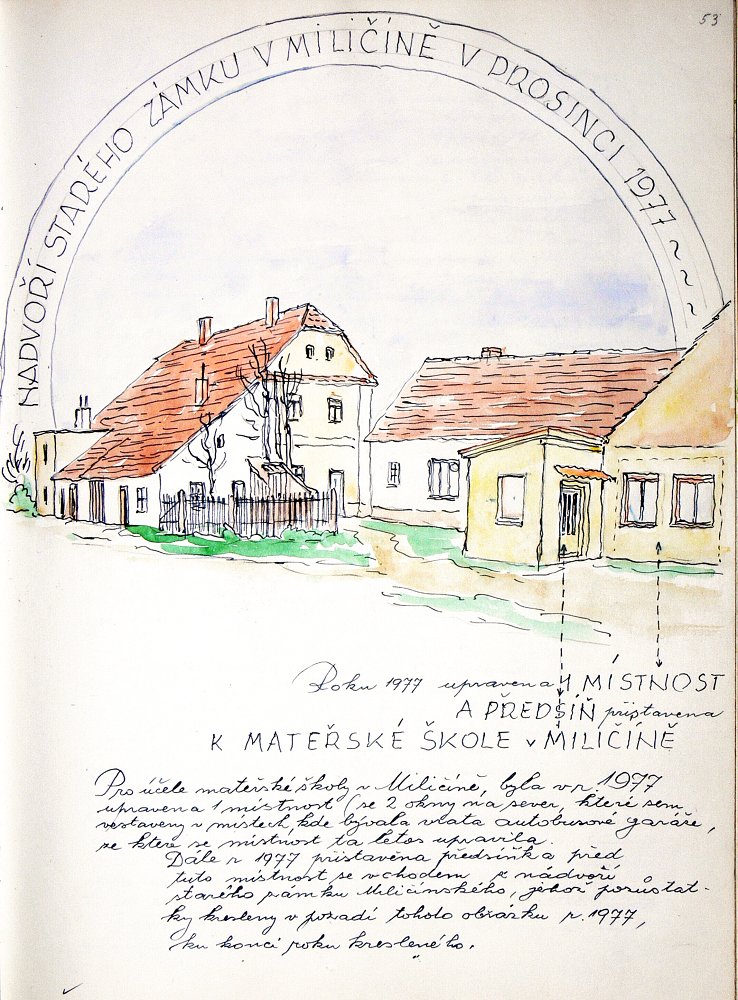 53
NADVOŘÍ STARÉHO ZÁMKU V MILIČÍNĚ V PROSINCI 1977 ~ ~ ~
Roku 1977 upravena 1 MÍSTNOST
A PŘEDSÍŇ přistavena
K MATEŘSKÉ ŠKOLE v MILIČÍNĚ
Pro účele mateřské školy v Miličíně, byla v r. 1977
upravena 1 místnost (se 2 okny na sever, které sem
vestaveny v místech, kde bývala vrata autobusové garáže,
ze které se místnost ta letos upravila.
Dále r 1977 přistavěna předsíňka před
tuto místnost se vchodem z nádvoří
starého zámku Miličínského, jehož pozůstat-
ky kresleny v pozadí tohoto obrázku r. 1977,
ku konci roku kresleného.